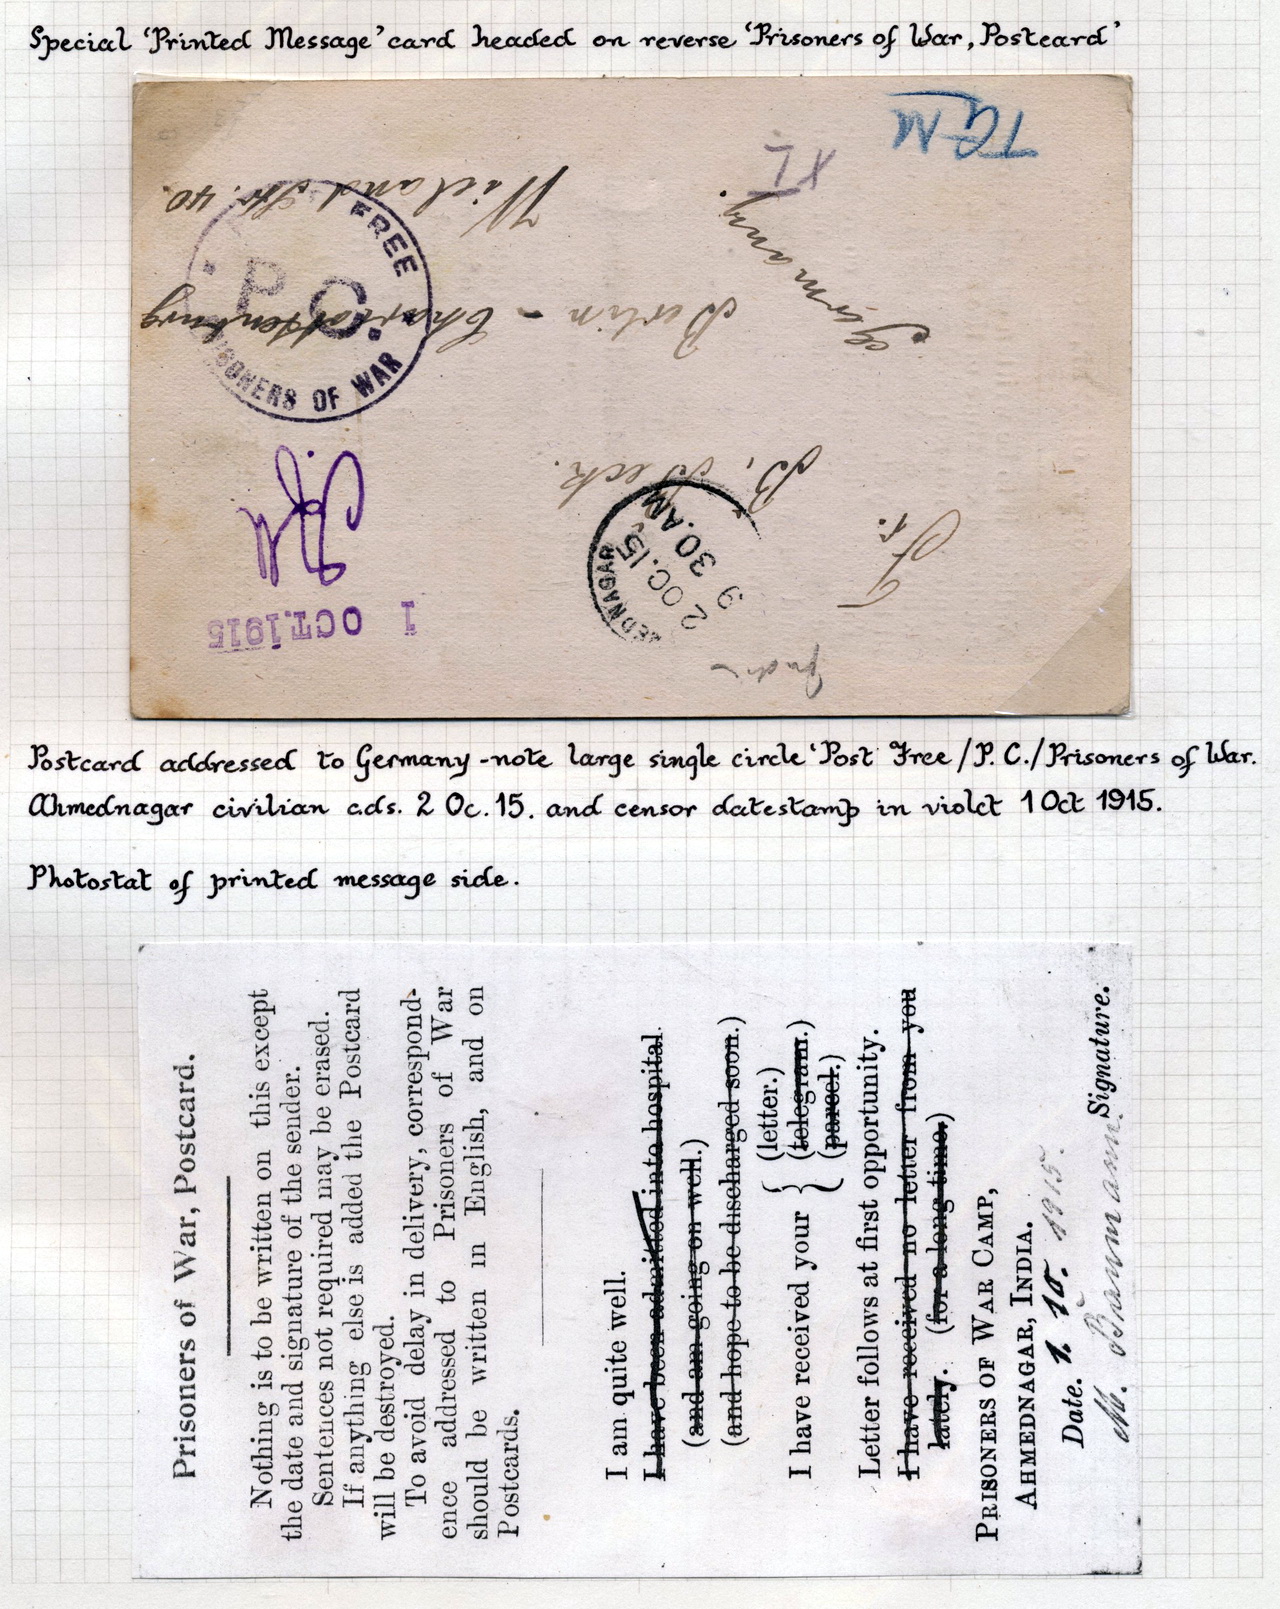 Special 'Printed Message' card headed on reverse 'Prisoners of War, Postcard'
T G M
XL
Wieland Str. 40.
FREE
P.C.
PRISONERS OF WAR
Germany.
Berlin - Charlottenburg
Fr.
B.
EDNAGAR
2 OC. 15
9 30. AM
1 OCT. 1915
Postcard addressed to Germany - note large single circle 'Post Free / P. C. / Prisoners of War.
Ahmednagar civilian c.d.s. 2 Oc. 15. and censor datestamp in violet 1 Oct 1915.
Photostat of printed message side.
Prisoners of War, Postcard.
Nothing is to be written on this except
the date and signature of the sender.
Sentences not required may be erased.
If anything else is added the Postcard
will be destroyed.
To avoid delay in delivery, correspond-
ence addressed to Prisoners of War
should be written in English, and on
Postcards.
I am quite well.
I have been admitted into hospital.
(and am going on well.)
(and hope to be discharged soon.)
I have received your { (letter.)
(telegram.)
(parcel.)
Letter follows at first opportunity.
I have received no letter from you
lately. (for a long time.)
PRISONERS OF WAR CAMP,
AHMEDNAGAR, INDIA.
Date. 1. 10. 1915.
M. Baumann. Signature.